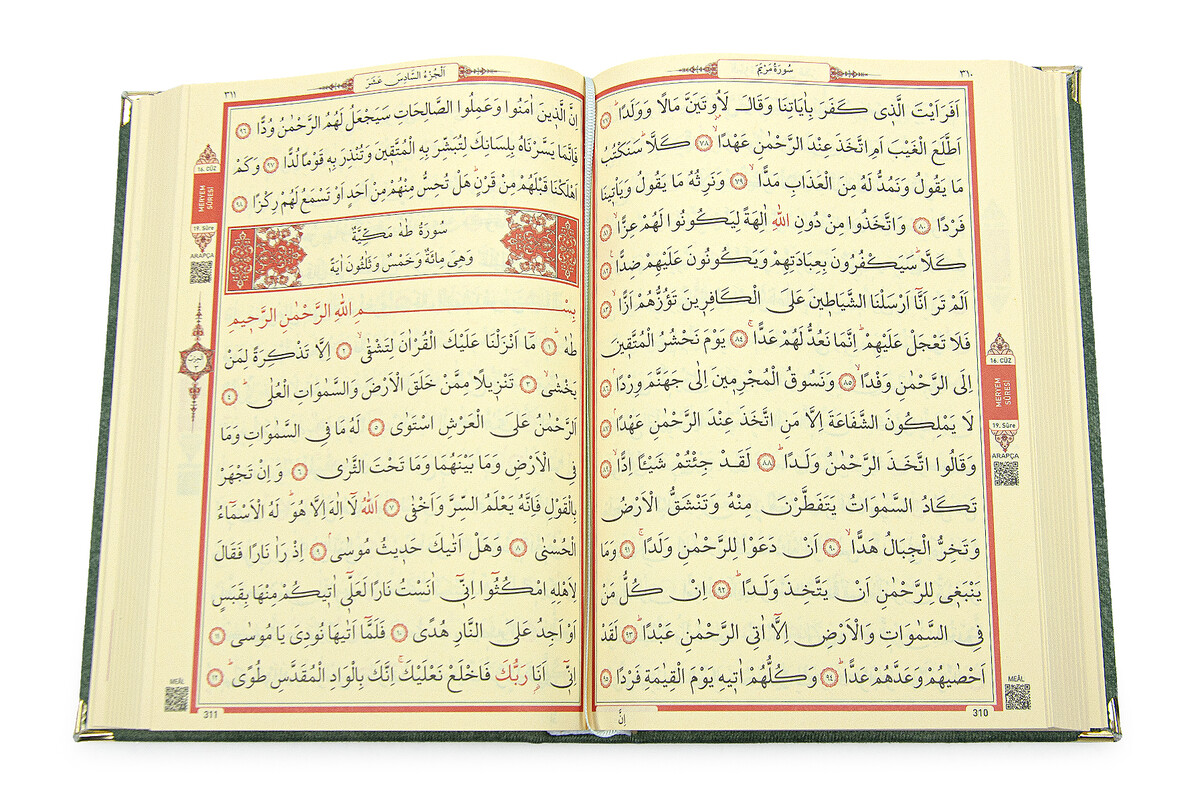 سُورَةُ مَرْيَمَ
٣١٠
اَفَرَاَيْتَ الَّذ۪ي كَفَرَ بِاٰيَاتِنَا وَقَالَ لَاُو۫تَيَنَّ مَالًا وَوَلَدًاۜ ﴿٧٧﴾
اَطَّلَعَ الْغَيْبَ اَمِ اتَّخَذَ عِنْدَ الرَّحْمٰنِ عَهْدًاۙ ﴿٧٨﴾ كَلَّاۜ سَنَكْتُبُ
مَا يَقُولُ وَنَمُدُّ لَهُ مِنَ الْعَذَابِ مَدًّاۙ ﴿٧٩﴾ وَنَرِثُهُ مَا يَقُولُ وَيَأْت۪ينَا
فَرْدًا ﴿٨٠﴾ وَاتَّخَذُوا مِنْ دُونِ اللّٰهِ اٰلِهَةً لِيَكُونُوا لَهُمْ عِزًّاۙ ﴿٨١﴾
كَلَّاۜ سَيَكْفُرُونَ بِعِبَادَتِهِمْ وَيَكُونُونَ عَلَيْهِمْ ضِدًّا۟ ﴿٨٢﴾
اَلَمْ تَرَ اَنَّٓا اَرْسَلْنَا الشَّيَاط۪ينَ عَلَى الْكَافِر۪ينَ تَؤُزُّهُمْ اَزًّاۙ ﴿٨٣﴾
فَلَا تَعْجَلْ عَلَيْهِمْۜ اِنَّمَا نَعُدُّ لَهُمْ عَدًّاۚ ﴿٨٤﴾ يَوْمَ نَحْشُرُ الْمُتَّق۪ينَ
اِلَى الرَّحْمٰنِ وَفْدًاۙ ﴿٨٥﴾ وَنَسُوقُ الْمُجْرِم۪ينَ اِلٰى جَهَنَّمَ وِرْدًاۢ ﴿٨٦﴾
لَا يَمْلِكُونَ الشَّفَاعَةَ اِلَّا مَنِ اتَّخَذَ عِنْدَ الرَّحْمٰنِ عَهْدًاۢ ﴿٨٧﴾
وَقَالُوا اتَّخَذَ الرَّحْمٰنُ وَلَدًاۜ ﴿٨٨﴾ لَقَدْ جِئْتُمْ شَيْـًٔا اِدًّاۙ ﴿٨٩﴾
تَكَادُ السَّمٰوَاتُ يَتَفَطَّرْنَ مِنْهُ وَتَنْشَقُّ الْاَرْضُ
وَتَخِرُّ الْجِبَالُ هَدًّاۙ ﴿٩٠﴾ اَنْ دَعَوْا لِلرَّحْمٰنِ وَلَدًاۚ ﴿٩١﴾ وَمَا
يَنْبَغ۪ي لِلرَّحْمٰنِ اَنْ يَتَّخِذَ وَلَدًاۜ ﴿٩٢﴾ اِنْ كُلُّ مَنْ
فِي السَّمٰوَاتِ وَالْاَرْضِ اِلَّٓا اٰتِي الرَّحْمٰنِ عَبْدًاۜ ﴿٩٣﴾ لَقَدْ
اَحْصٰيهُمْ وَعَدَّهُمْ عَدًّاۜ ﴿٩٤﴾ وَكُلُّهُمْ اٰت۪يهِ يَوْمَ الْقِيٰمَةِ فَرْدًا ﴿٩٥﴾
اِنَّ
310
16. CÜZ
MERYEM
SÛRESİ
19. Sûre
ARAPÇA
MEÂL
اَلْجُزْءُ السَّادِسَ عَشَرَ
٣١١
اِنَّ الَّذ۪ينَ اٰمَنُوا وَعَمِلُوا الصَّالِحَاتِ سَيَجْعَلُ لَهُمُ الرَّحْمٰنُ وُدًّا ﴿٩٦﴾
فَاِنَّمَا يَسَّرْنَاهُ بِلِسَانِكَ لِتُبَشِّرَ بِهِ الْمُتَّق۪ينَ وَتُنْذِرَ بِه۪ قَوْمًا لُدًّا ﴿٩٧﴾ وَكَمْ
اَهْلَكْنَا قَبْلَهُمْ مِنْ قَرْنٍۜ هَلْ تُحِسُّ مِنْهُمْ مِنْ اَحَدٍ اَوْ تَسْمَعُ لَهُمْ رِكْزًا ﴿٩٨﴾
سُورَةُ طٰهٰ مَكِّيَّةٌ
وَهِيَ مِائَةٌ وَخَمْسٌ وَثَلٰثُونَ اٰيَةً
بِسْمِ اللّٰهِ الرَّحْمٰنِ الرَّح۪يمِ
طٰهٰۜ ﴿١﴾ مَٓا اَنْزَلْنَا عَلَيْكَ الْقُرْاٰنَ لِتَشْقٰىۙ ﴿٢﴾ اِلَّا تَذْكِرَةً لِمَنْ
يَخْشٰىۙ ﴿٣﴾ تَنْز۪يلًا مِمَّنْ خَلَقَ الْاَرْضَ وَالسَّمٰوَاتِ الْعُلٰىۜ ﴿٤﴾
اَلرَّحْمٰنُ عَلَى الْعَرْشِ اسْتَوٰى ﴿٥﴾ لَهُ مَا فِي السَّمٰوَاتِ وَمَا
فِي الْاَرْضِ وَمَا بَيْنَهُمَا وَمَا تَحْتَ الثَّرٰى ﴿٦﴾ وَاِنْ تَجْهَرْ
بِالْقَوْلِ فَاِنَّهُ يَعْلَمُ السِّرَّ وَاَخْفٰى ﴿٧﴾ اَللّٰهُ لَٓا اِلٰهَ اِلَّا هُوَۜ لَهُ الْاَسْمَٓاءُ
الْحُسْنٰى ﴿٨﴾ وَهَلْ اَتٰيكَ حَد۪يثُ مُوسٰىۢ ﴿٩﴾ اِذْ رَاٰ نَارًا فَقَالَ
لِاَهْلِهِ امْكُثُٓوا اِنّ۪ٓي اٰنَسْتُ نَارًا لَعَلّ۪ٓي اٰت۪يكُمْ مِنْهَا بِقَبَسٍ
اَوْ اَجِدُ عَلَى النَّارِ هُدًى ﴿١٠﴾ فَلَمَّٓا اَتٰيهَا نُودِيَ يَا مُوسٰى ﴿١١﴾
اِنّ۪ٓي اَنَا۬ رَبُّكَ فَاخْلَعْ نَعْلَيْكَۚ اِنَّكَ بِالْوَادِ الْمُقَدَّسِ طُوًىۜ ﴿١٢﴾
311
16. CÜZ
MERYEM
SÛRESİ
19. Sûre
ARAPÇA
MEÂL